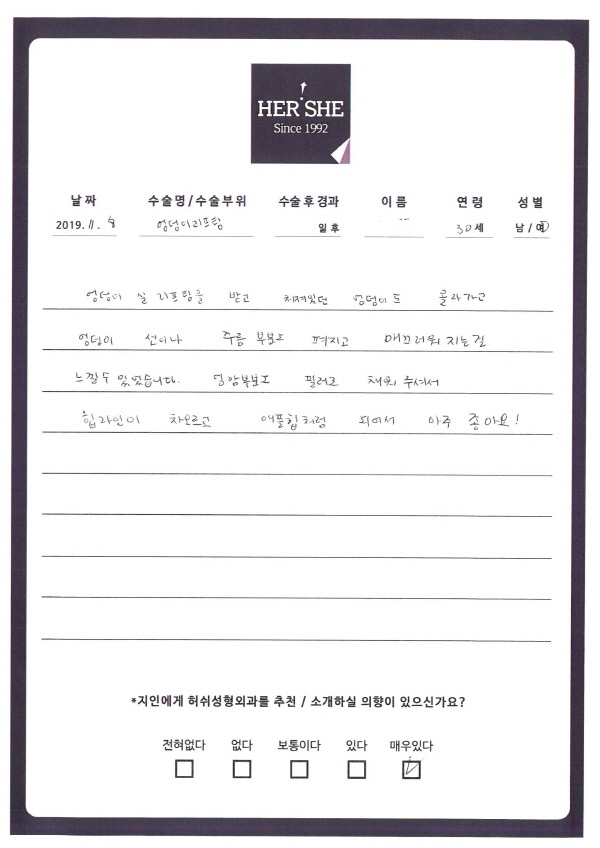 HER SHE
Since 1992
날짜 수술명/수술부위 수술후경과 이름 연령 성별
2019. 11. 8 엉덩이리프팅 일후 30세 남/여
엉덩이 실 리프팅을 받고 쳐져있던 엉덩이도 올라가고
엉덩이 선이나 주름 부분도 펴지고 매끄러워 지는걸
느낄수 있었습니다. 엉밑부분도 필러로 채워 주셔서
힙라인이 차오르고 애플힙처럼 되어서 아주 좋아요!
*지인에게 허쉬성형외과를 추천 / 소개하실 의향이 있으신가요?
전혀없다 없다 보통이다 있다 매우있다